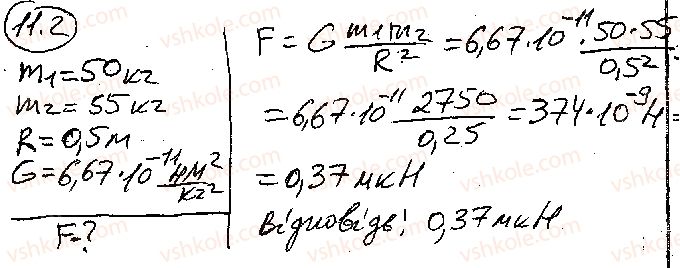 11.2
m₁=50кг
m₂=55кг
R=0,5м
G=6,67·10⁻¹¹ Нм²/кг²
F=?
F = G m₁m₂/R² = 6,67·10⁻¹¹ · 50·55/0,5² =
= 6,67·10⁻¹¹ 2750/0,25 = 374·10⁻⁹ Н =
= 0,37 мкН
Відповідь: 0,37 мкН